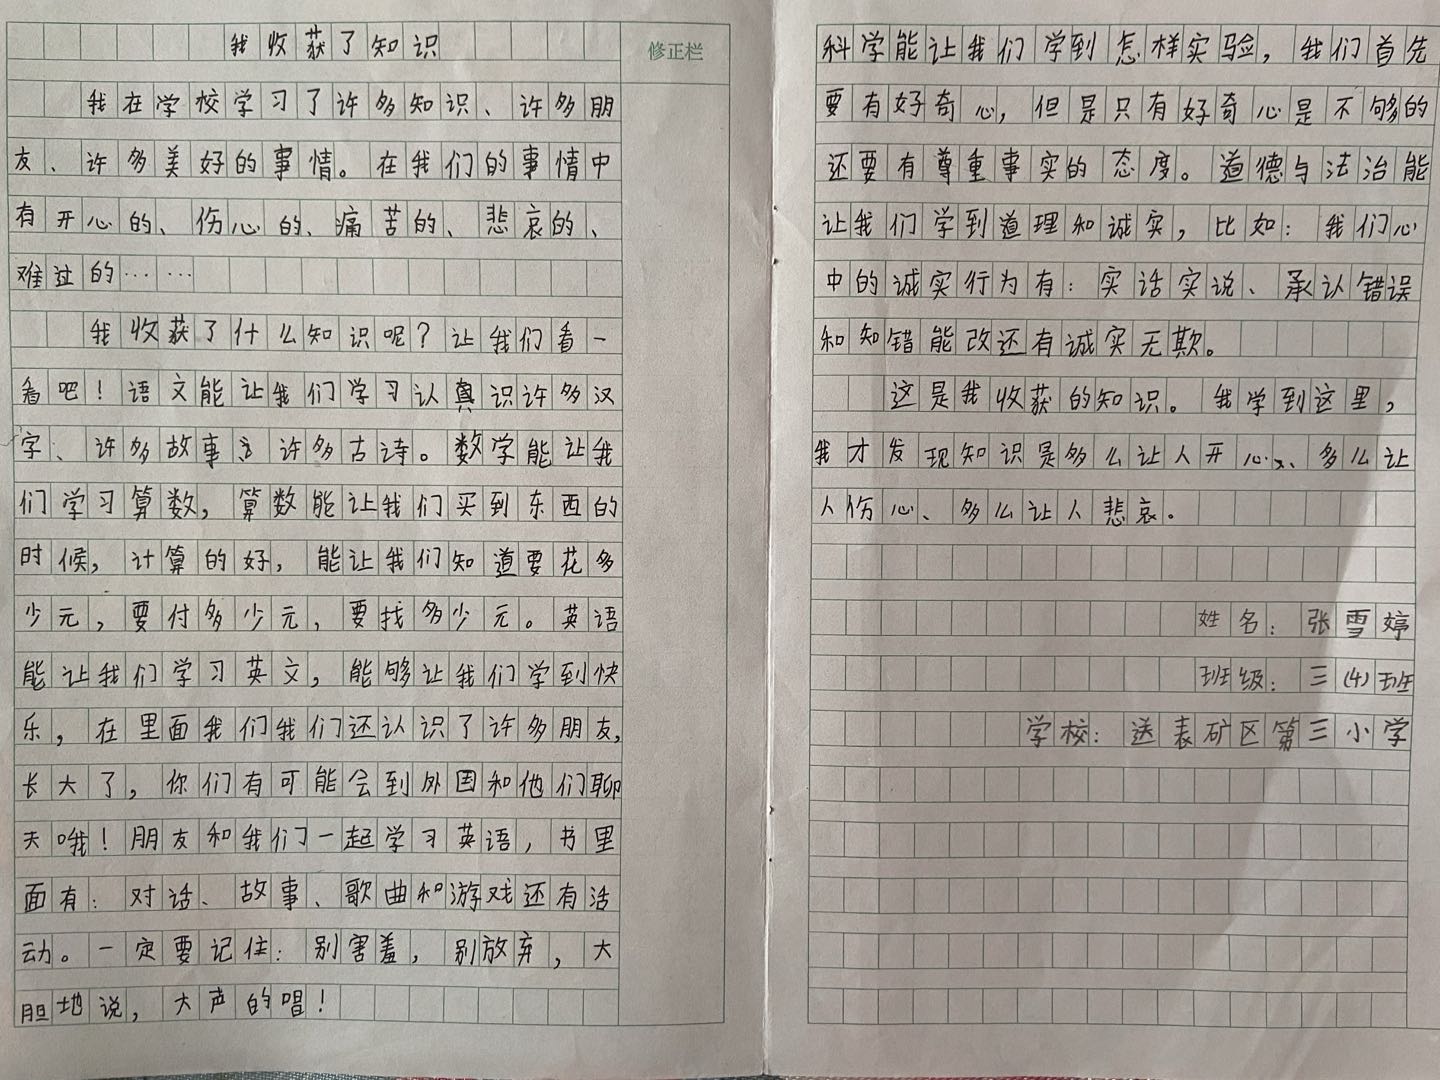 我收获了知识
修正栏
我在学校学习了许多知识、许多朋
友、许多美好的事情。在我们的事情中
有开心的、伤心的、痛苦的、悲哀的、
难过的……
我收获了什么知识呢？让我们看一
看吧！语文能让我们学习认真识许多汉
字、许多故事 许多古诗。数学能让我
们学习算数，算数能让我们买到东西的
时候，计算的好，能让我们知道要花多
少元，要付多少元，要找多少元。英语
能让我们学习英文，能够让我们学到快
乐，在里面我们我们还认识了许多朋友，
长大了，你们有可能会到外国和他们聊
天哦！朋友和我们一起学习英语，书里
面有：对话、故事、歌曲和游戏还有活
动。一定要记住：别害羞，别放弃，大
胆地说，大声的唱！
科学能让我们学到怎样实验，我们首先
要有好奇心，但是只有好奇心是不够的
还要有尊重事实的态度。道德与法治能
让我们学到道理和诚实，比如：我们心
中的诚实行为有：实话实说、承认错误
和知错能改还有诚实无欺。
这是我收获的知识。我学到这里，
我才发现知识是多么让人开心、多么让
人伤心、多么让人悲哀。
姓名：张雪婷
班级：三（4）班
学校：送表矿区第三小学